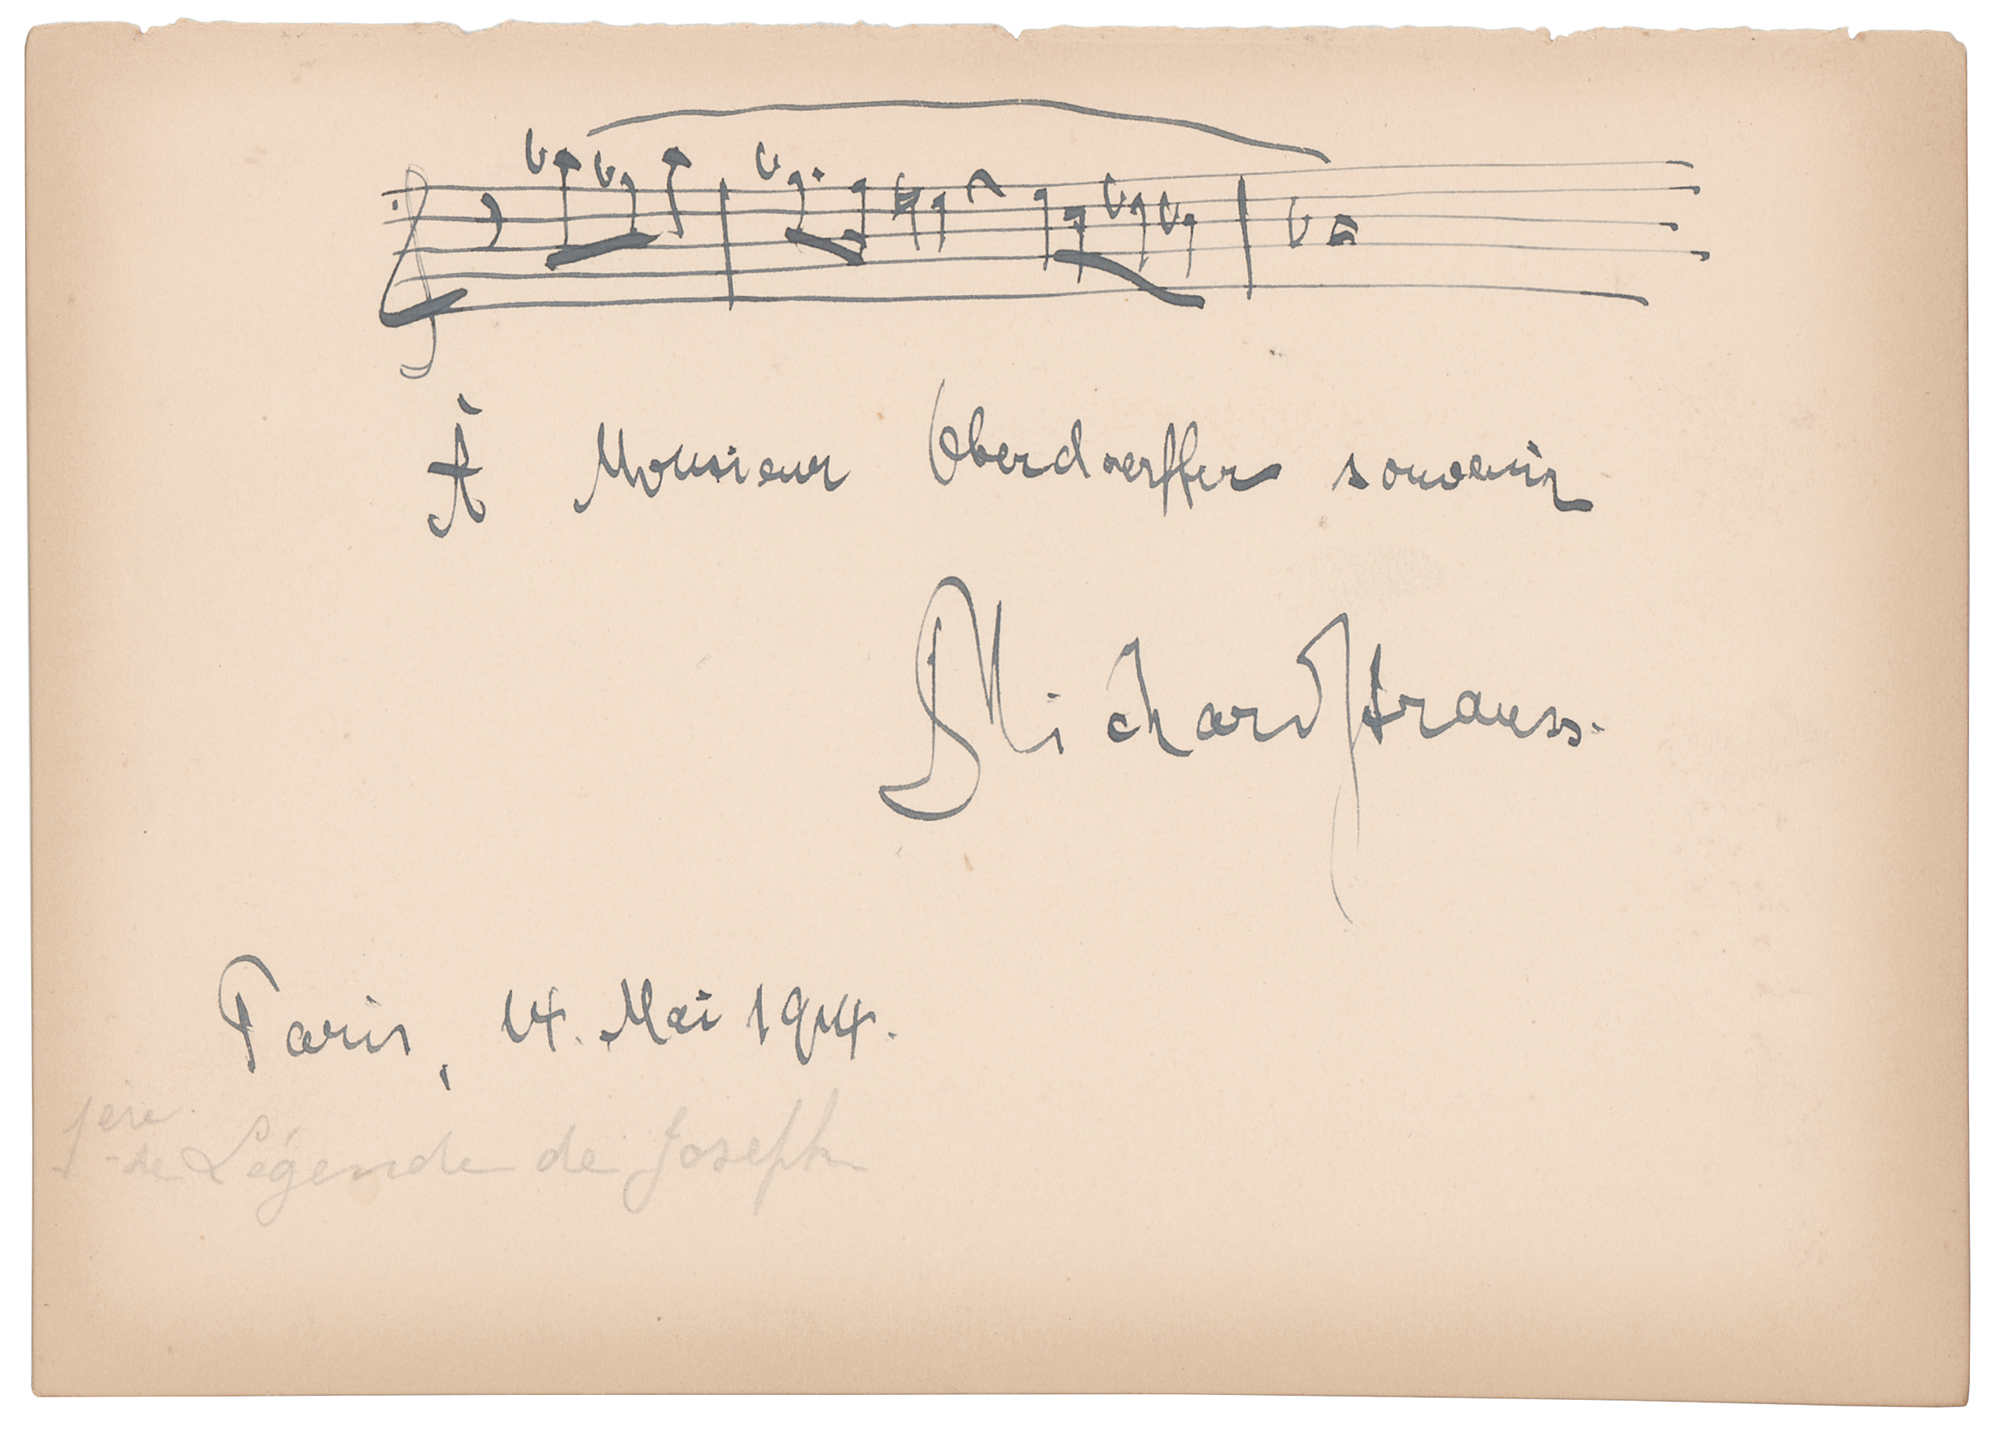 À Monsieur Oberdoerffer souvenir
Richard Strauss.
Paris, 14. Mai 1914.
1ère de Légende de Joseph